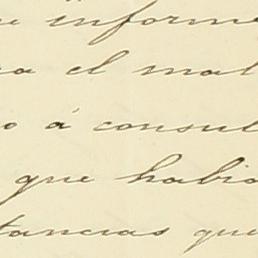 informe
el mal
o á consul
que habia
tancias que